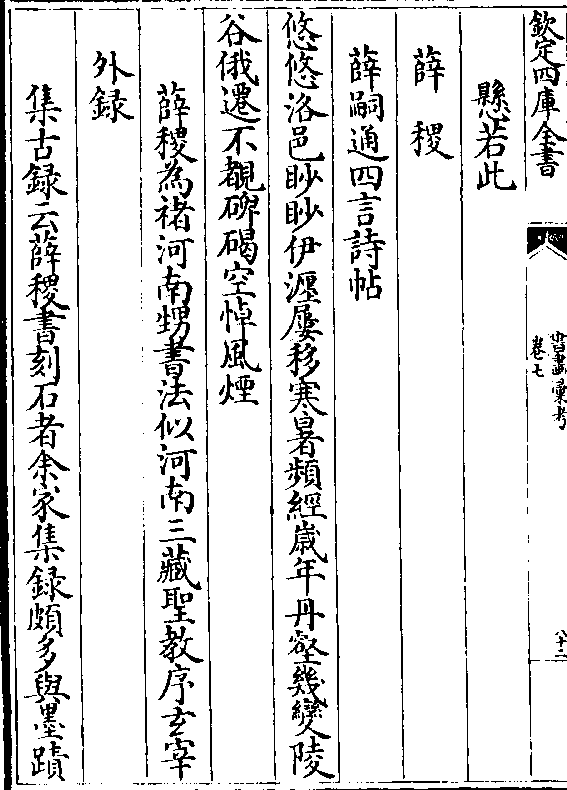 欽定四庫全書
書畫彙考
卷七
八十二
懸若此
薛稷
薛嗣通四言詩帖
悠悠洛邑眇眇伊瀍屢移寒暑頻經歲年丹壑幾變陵
谷俄遷不覩碑碣空悼風煙
薛稷為禇河南甥書法似河南三藏聖教序玄宰
外録
集古録云薛稷書刻石者余家集録頗多與墨蹟